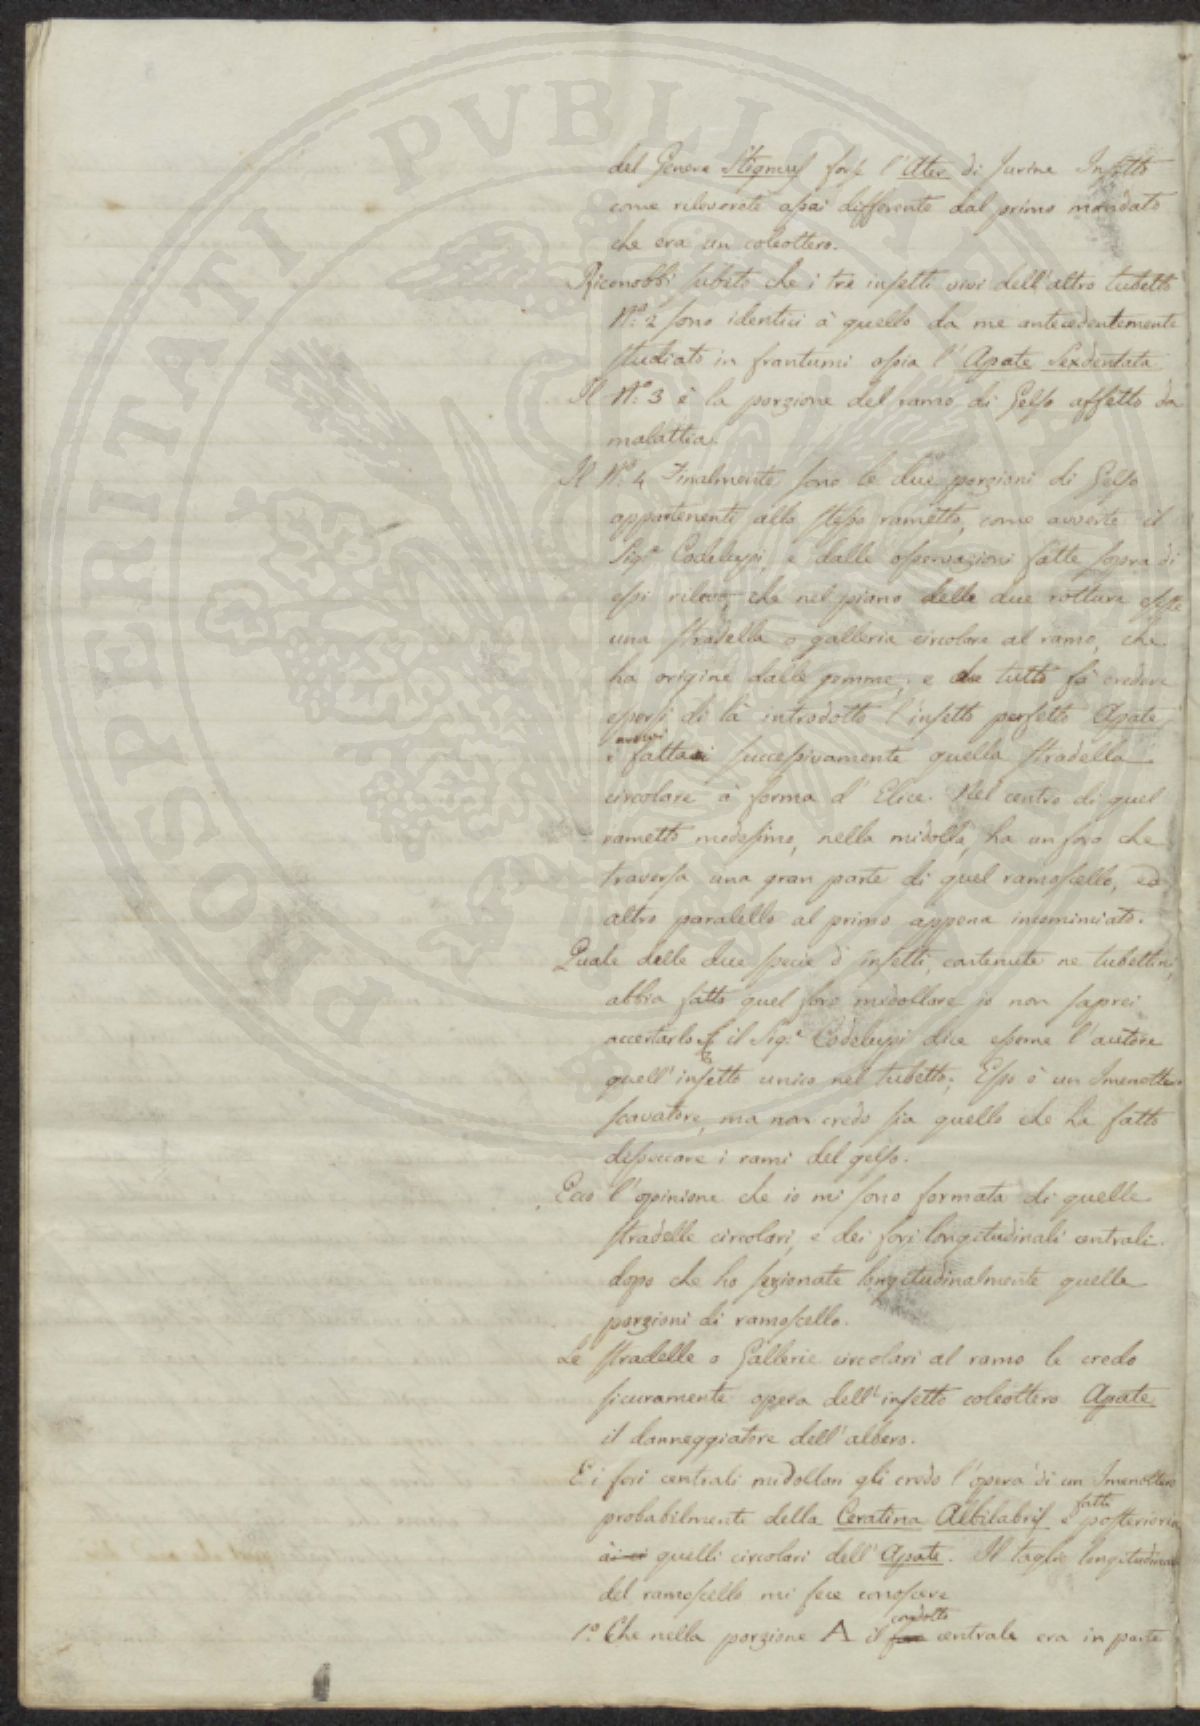 del Genere Stigmus forse l'Ater di Jurine Insetto
come rileverete assai differente dal primo mandato
che era un coleottero.
Riconobbi subito che i tre insetti vivi dell'altro tubetto
N.º 2 sono identici à quello da me antecedentemente
studiato in frantumi ossia l'Apate Sexdentata
Il N.º 3 è la porzione del ramo di Gelso affetto da
malattia.
Il N.º 4 Finalmente sono le due porzioni di Gelso
appartenenti allo stesso rametto, come avverte il
Sig.e Codeluppi, e dalle osservazioni fatte sopra di
essi rilevo, che nel piano delle due rotture esiste
una stradella o galleria circolare al ramo, che
ha origine dalle gemme, e tutto fà credere
essersi di là introdotto l'insetto perfetto Apate
e fattasi successivamente quella stradella
circolare à forma d'Elice. Nel centro di quel
rametto medesimo, nella midolla, ha un foro che
traversa una gran parte di quel ramoscello, ed
altro paralello al primo appena incominciato.
Quale delle due specie d'insetti, contenute ne tubettini,
abbia fatto quel foro midollare io non saprei
accertarlo il Sig.e Codeluppi dice esserne l'autore
quell'insetto unico nel tubetto; Esso è un Imenottero
scavatore, ma non credo sia quello che ha fatto
disseccare i rami del gelso.
Ecco l'opinione che io mi sono formata di quelle
stradelle circolari, e dei fori longitudinali centrali.
dopo che ho sezionate longitudinalmente quelle
porzioni di ramoscello.
Le stradelle o Gallerie circolari al ramo le credo
sicuramente opera dell'insetto coleottero Apate
il danneggiatore dell'albero.
E i fori centrali midollari gli credo l'opera di un Imenottero
fatti
probabilmente della Ceratina Albilabris e posteriori
ài ci quelli circolari dell'Apate. Il taglio longitudinale
del ramoscello mi fece conoscere
condotto
1.º Che nella porzione A il foro centrale era in parte